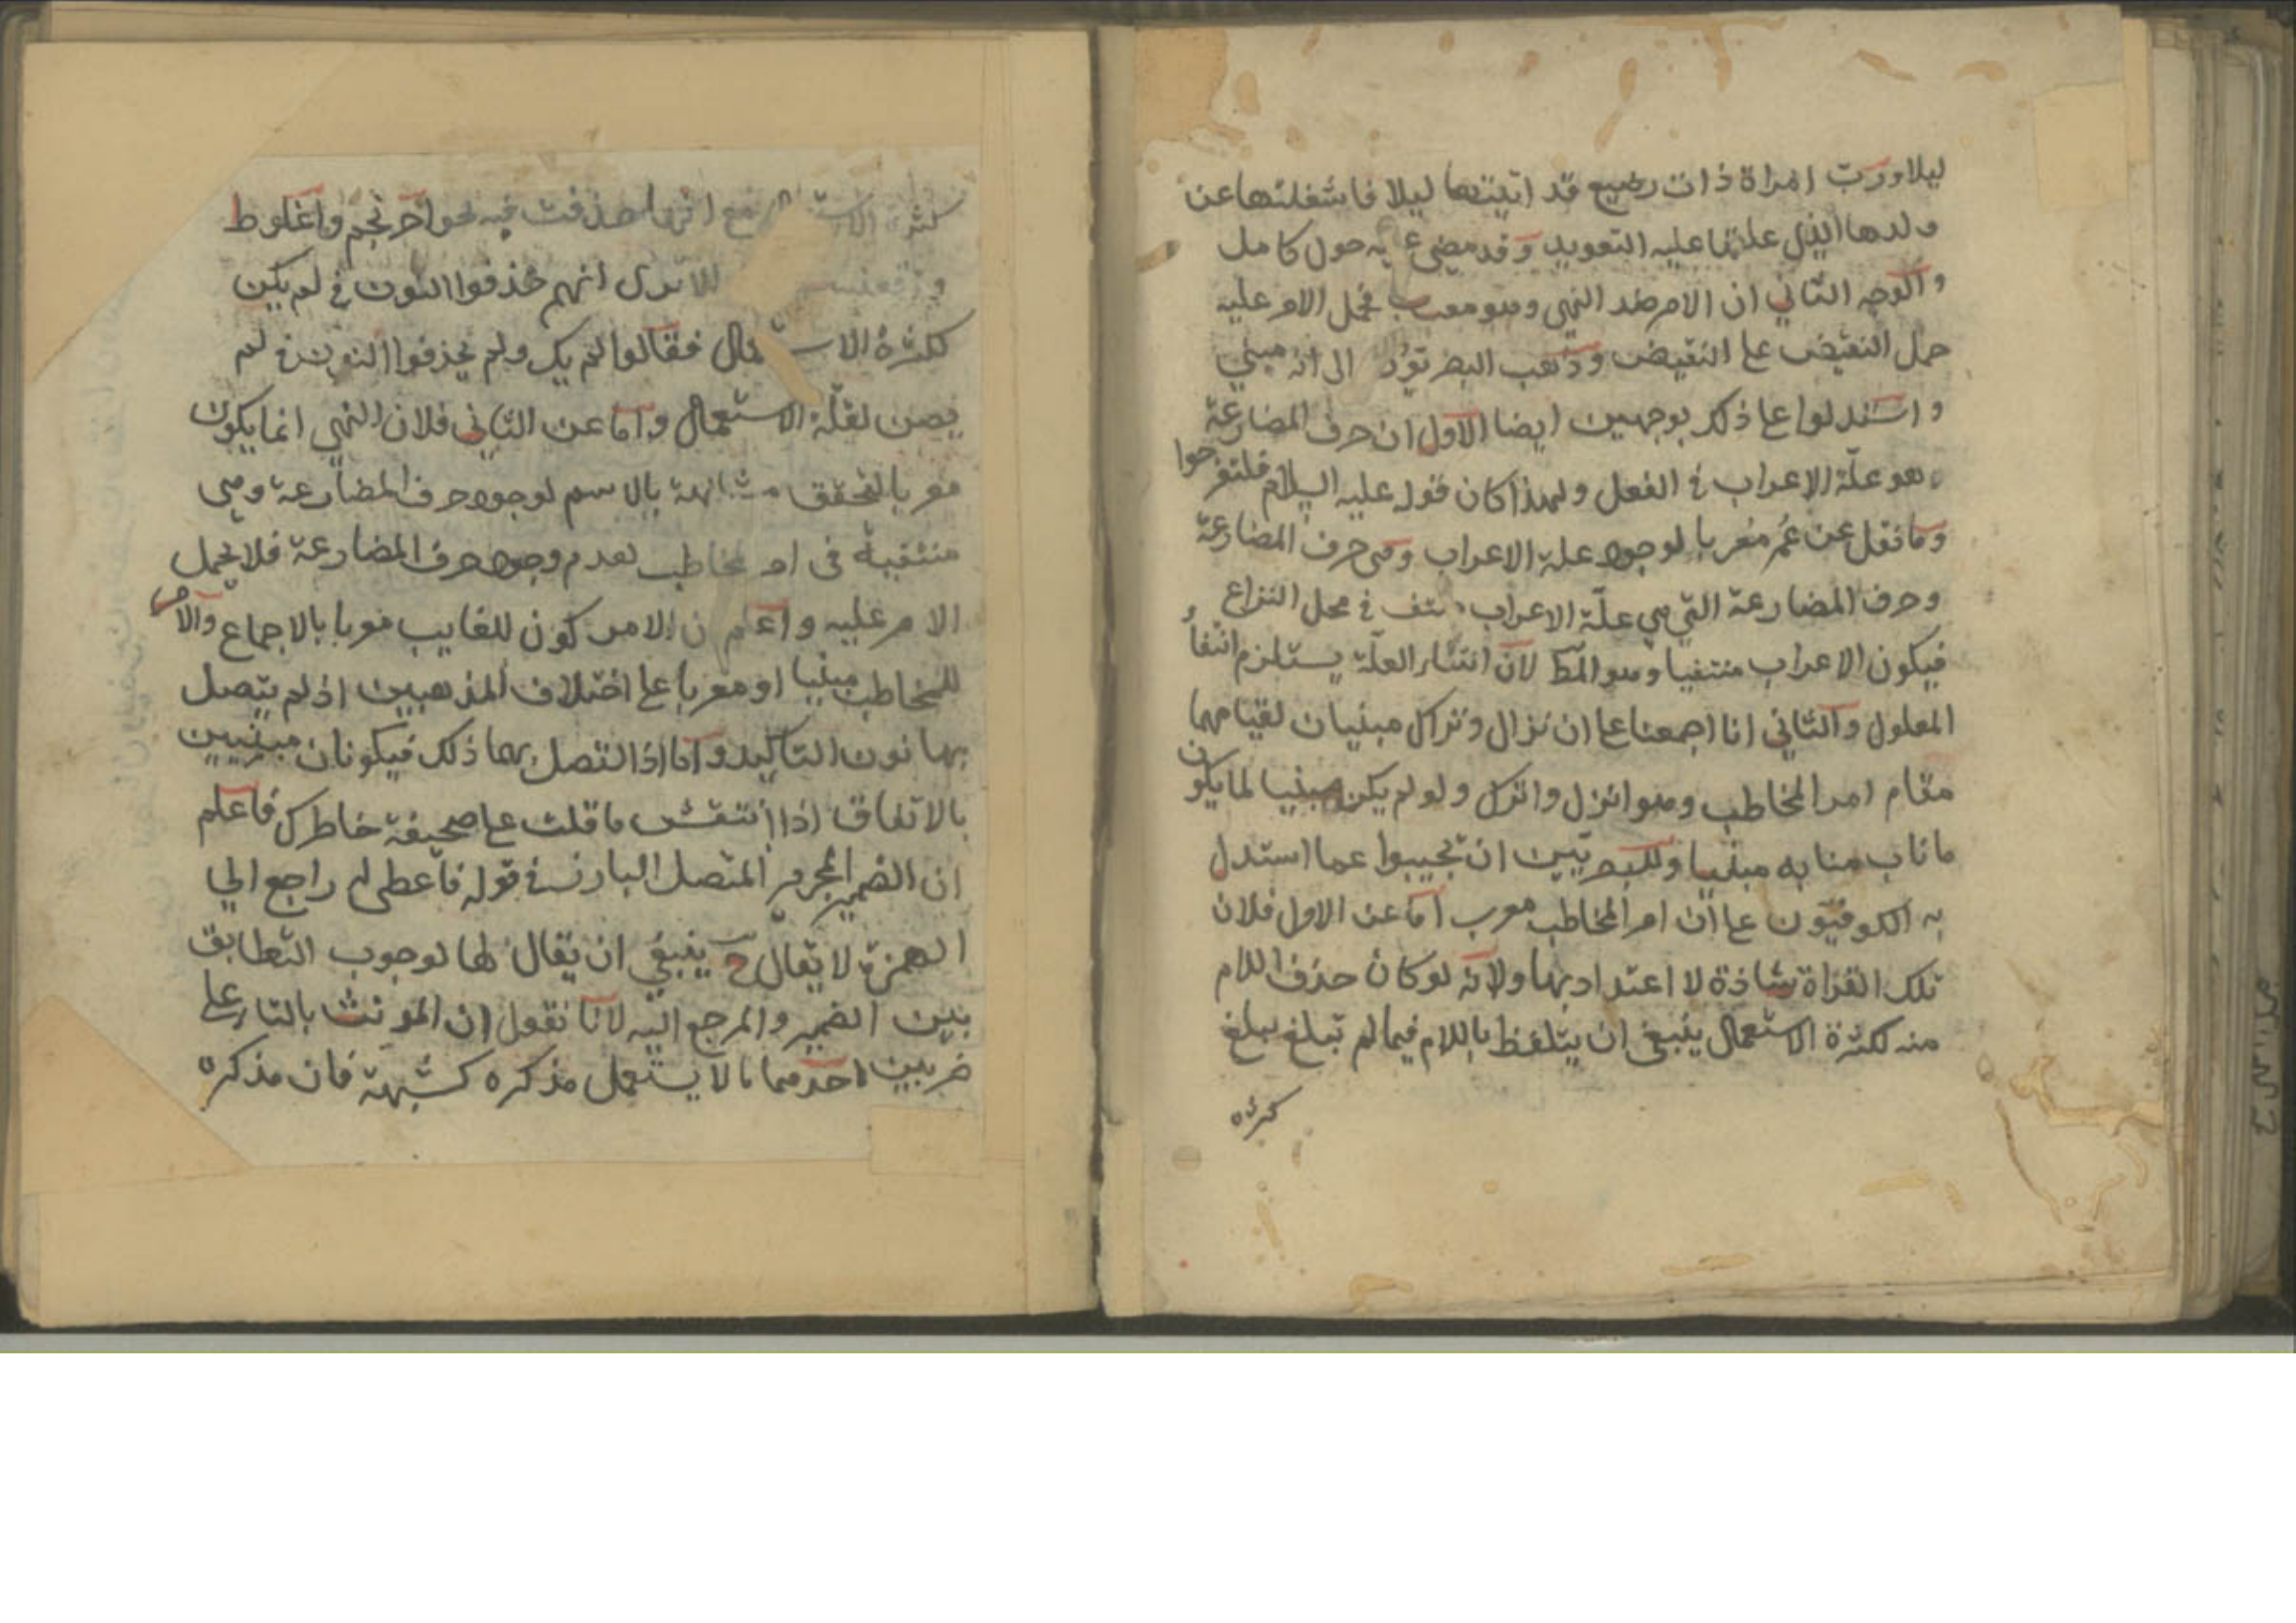 ليلا ورب امراة ذات رضيع قد اتيتها ليلا فاشغلتها عن
ولدها الذي علقنا عليه التعويد وقد مضى عليه حول كامل
والوجه الثاني ان الامر ضد النهى وهو معرب فحمل الامر عليه
حمل النقيض علے النقيض وذهب البصريون الى انه مبني
واستدلوا علے ذلك بوجهين ايضا الاول ان حرف المضارعة
هو علّة الاعراب في الفعل ولهذا كان قوله عليه السلام فلتفرحوا
وما نقل عن عُمر مُعربا لوجود علة الاعراب وهى حرف المضارعة
وحرف المضارعة التي هي علّة الاعراب منتف في محل النزاع
فيكون الاعراب منتفيا وهو المط لانّ انتفاء العلّة يستلزم انتفاء
المعلول والثاني انا اجمعنا علے ان نزال وتراك مبنيان لقيامهما
مقام امر المخاطب وهو انزل واترك ولو لم يكن مبنيا لما يكون
ما ناب منابه مبنيا وللبصريّين ان تجيبوا عما استدل
به الكوفيّون علے ان امر المخاطب معرب اما عن الاول فلان
تلك القراة شاذة لا اعتداد بها ولانّه لو كان حذف اللام
منه لكثرة الاستعمال ينبغي ان يتلفظ باللام فيما لم تبلغ مبلغ
كثرة
كثرة الاستعمال مع انها حذفت فيه نحو احرنجم واغلوط
الا ترى انهم حذفوا النون في لم يكن
لكثرة الاستعمال فقالوا لم يك ولم يحذفوا النون في لم
يصن لقلّة الاستعمال واما عن الثاني فلان النهي انما يكون
معربا لتحقق مشابهة بالاسم لوجود حرف المضارعة وهى
منتفية فى امر مخاطب لعدم وجود حرف المضارعة فلا يحمل
الامر عليه واعلم ان الامر كون للغايب معربا بالاجماع والامر
للمخاطب مبنيا او معربا علے اختلاف المذهبين اذ لم يتصل
بهما نون التاكيد واما اذا اتصل بهما ذلك فيكونان مبنيين
بالاتفاق اذا انتقش ما قلت علے صحيفة خاطرك فاعلم
ان الضمير المجرور المتصل البارز في قوله فاعطى له راجع الي
الهمزة لا يقال ح ينبغي ان يقال لها لوجوب التطابق
بين الضمير والمرجع اليه لانا نقول ان المونث بالتاء علے
ضربين احدهما ما لا يستعمل مذكره كشبهة فان مذكره